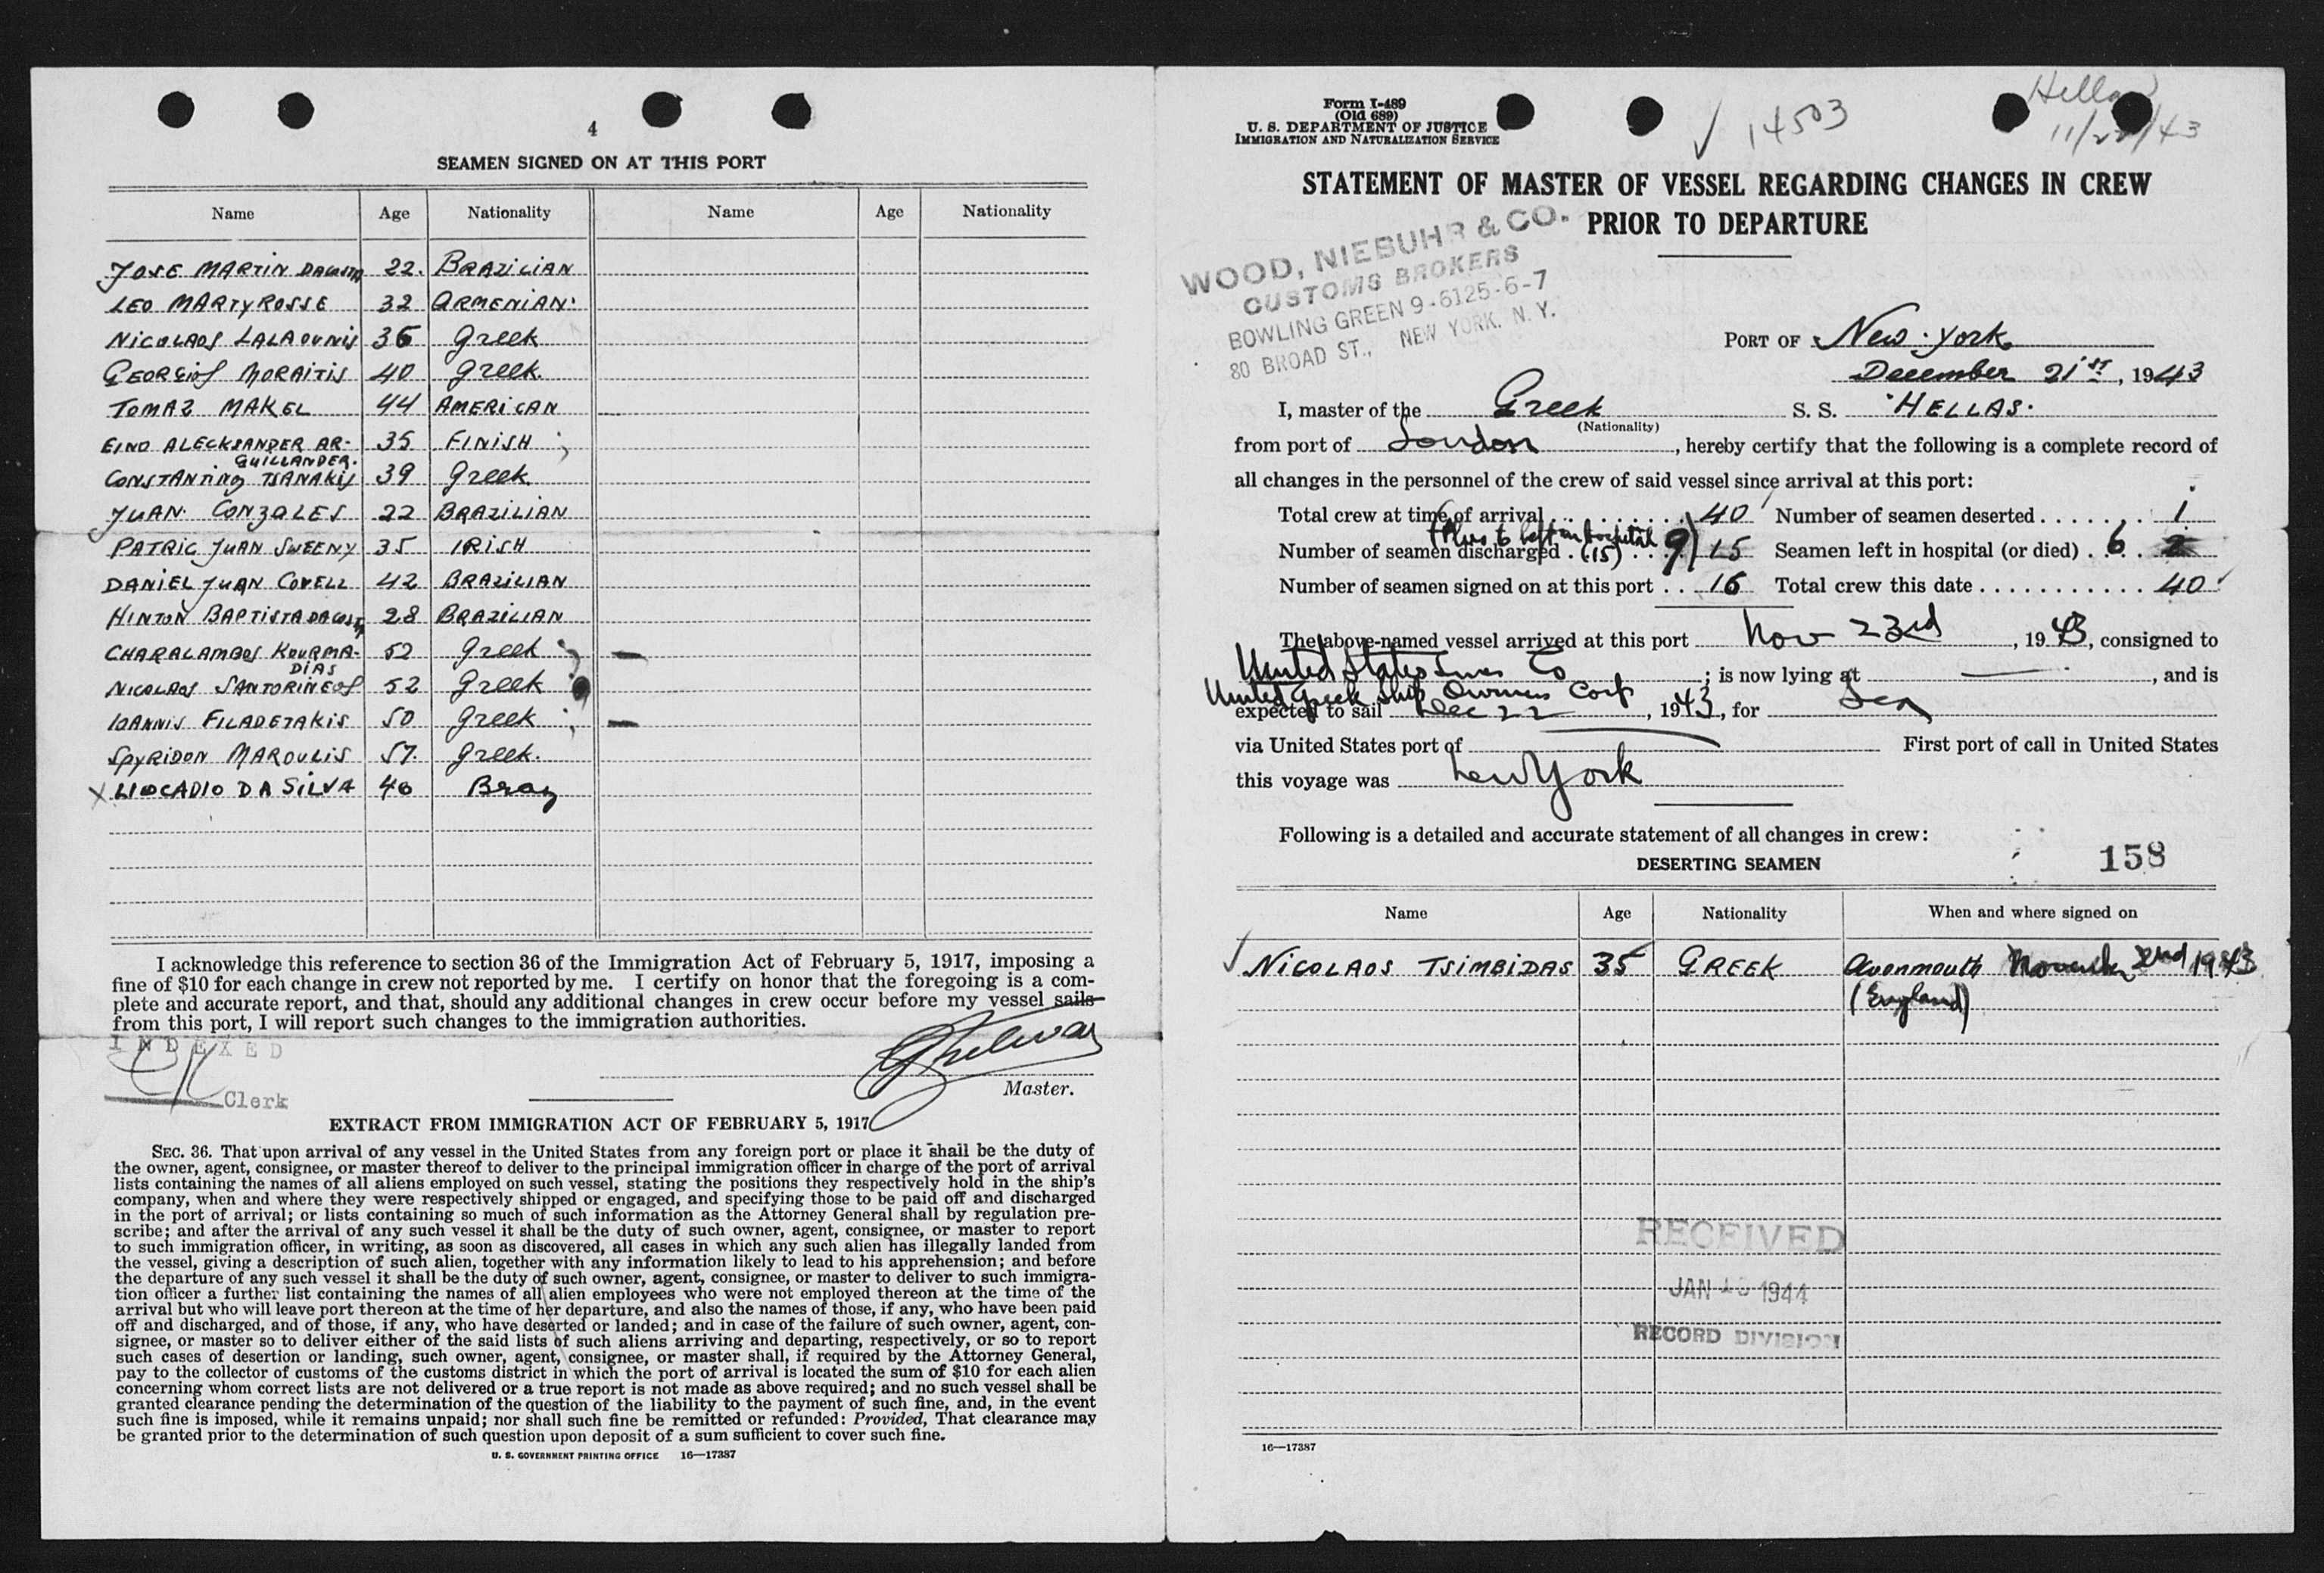 4
SEAMEN SIGNED ON AT THIS PORT
Name Age Nationality Name Age Nationality
JOSE MARTIN DACOSTA 22. BRAZILIAN
LEO MARTYROSSE 32 ARMENIAN.
NICOLAOS LALAOUNIS 36 Greek
GEORGIOS MORAITIS 40 Greek.
TOMAZ MAKEL 44 AMERICAN
EINO ALECKSANDER AR- 35 FINISH
GUILLANDER.
CONSTANTINO TSANAKIS 39 Greek
JUAN. CONZALES 22 BRAZILIAN
PATRIC JUAN SWEENY 35 IRISH
DANIEL JUAN COVELL 42 BRAZILIAN
HINTON BAPTISTA DACOSTA 28 BRAZILIAN
CHARALAMBOS KOURMA- 52 Greek
DIAS
NICOLAOS SANTORINEOS 52 Greek
IOANNIS FILADETAKIS 50 Greek
SPYRIDON MAROULIS 57. Greek.
X LIOCADIO DA SILVA 40 Braz
I acknowledge this reference to section 36 of the Immigration Act of February 5, 1917, imposing a
fine of $10 for each change in crew not reported by me. I certify on honor that the foregoing is a com-
plete and accurate report, and that, should any additional changes in crew occur before my vessel sails
from this port, I will report such changes to the immigration authorities.
INDEXED
Clerk
Master.
EXTRACT FROM IMMIGRATION ACT OF FEBRUARY 5, 1917
SEC. 36. That upon arrival of any vessel in the United States from any foreign port or place it shall be the duty of
the owner, agent, consignee, or master thereof to deliver to the principal immigration officer in charge of the port of arrival
lists containing the names of all aliens employed on such vessel, stating the positions they respectively hold in the ship's
company, when and where they were respectively shipped or engaged, and specifying those to be paid off and discharged
in the port of arrival; or lists containing so much of such information as the Attorney General shall by regulation pre-
scribe; and after the arrival of any such vessel it shall be the duty of such owner, agent, consignee, or master to report
to such immigration officer, in writing, as soon as discovered, all cases in which any such alien has illegally landed from
the vessel, giving a description of such alien, together with any information likely to lead to his apprehension; and before
the departure of any such vessel it shall be the duty of such owner, agent, consignee, or master to deliver to such immigra-
tion officer a further list containing the names of all alien employees who were not employed thereon at the time of the
arrival but who will leave port thereon at the time of her departure, and also the names of those, if any, who have been paid
off and discharged, and of those, if any, who have deserted or landed; and in case of the failure of such owner, agent, con-
signee, or master so to deliver either of the said lists of such aliens arriving and departing, respectively, or so to report
such cases of desertion or landing, such owner, agent, consignee, or master shall, if required by the Attorney General,
pay to the collector of customs of the customs district in which the port of arrival is located the sum of $10 for each alien
concerning whom correct lists are not delivered or a true report is not made as above required; and no such vessel shall be
granted clearance pending the determination of the question of the liability to the payment of such fine, and, in the event
such fine is imposed, while it remains unpaid; nor shall such fine be remitted or refunded: Provided, That clearance may
be granted prior to the determination of such question upon deposit of a sum sufficient to cover such fine.
U. S. GOVERNMENT PRINTING OFFICE 16—17387
Form I-489
(Old 689)
U. S. DEPARTMENT OF JUSTICE
IMMIGRATION AND NATURALIZATION SERVICE
14503
Hellas
11/22/43
STATEMENT OF MASTER OF VESSEL REGARDING CHANGES IN CREW
PRIOR TO DEPARTURE
WOOD, NIEBUHR & CO.
CUSTOMS BROKERS
BOWLING GREEN 9-6125-6-7
80 BROAD ST., NEW YORK, N. Y.
PORT OF New York
December 21st, 1943
I, master of the Greek S. S. "HELLAS.
(Nationality)
from port of London, hereby certify that the following is a complete record of
all changes in the personnel of the crew of said vessel since arrival at this port:
Total crew at time of arrival 40 Number of seamen deserted 1
(Plus 6 left in hospital 9)
Number of seamen discharged (15) 15 Seamen left in hospital (or died) 6 2
Number of seamen signed on at this port 16 Total crew this date 40
The above-named vessel arrived at this port Nov 23rd, 1943, consigned to
United States Lines Co; is now lying at —, and is
United Greek Ship Owners Corp
expected to sail Dec 22, 1943, for Sea
via United States port of First port of call in United States
this voyage was New York
Following is a detailed and accurate statement of all changes in crew:
DESERTING SEAMEN 158
Name Age Nationality When and where signed on
NICOLAOS TSIMBIDAS 35 GREEK Avonmouth November 2nd 1943
(England)
RECEIVED
JAN 1944
RECORD DIVISION
16—17387